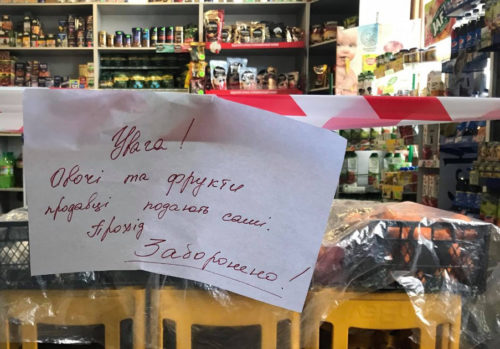 Увага!
Овочі та фрукти
продавці подають самі.
Прохід
Заборонено!